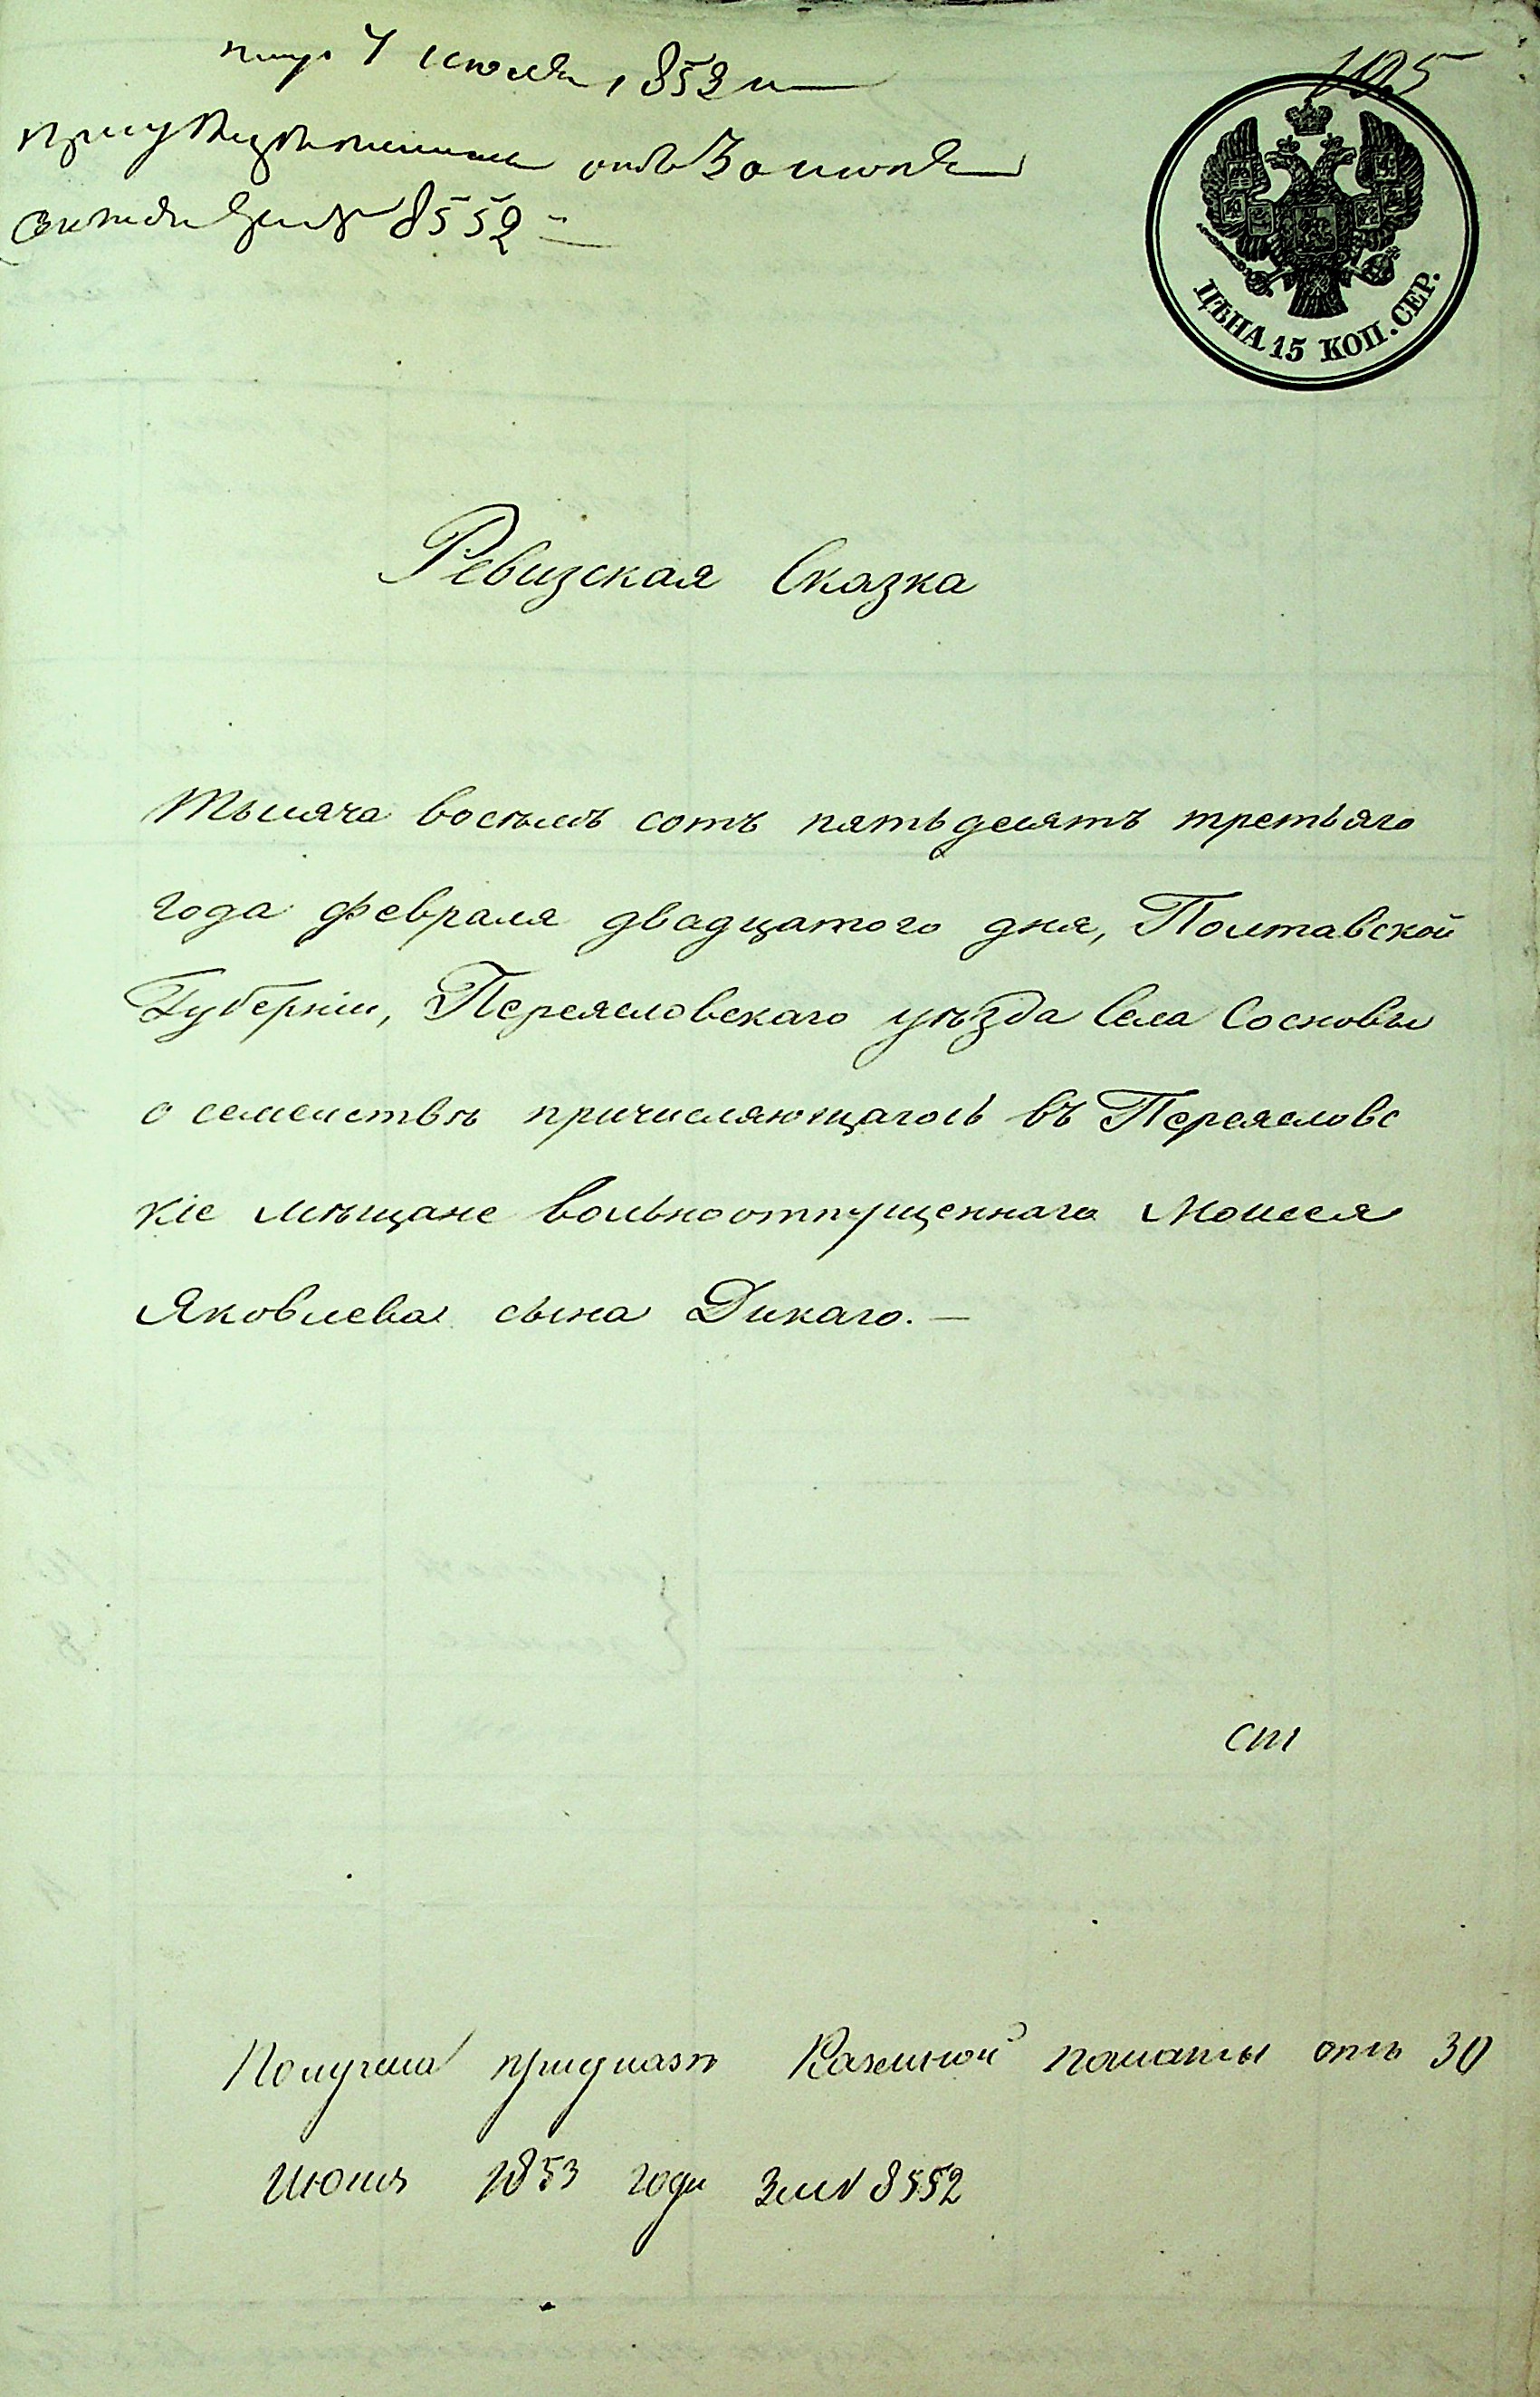 195
7 июля 1853
30 июня
8552
ЦѢНА 15 КОП. СЕР.
Ревизская Сказка
Тысяча восемь сотъ пятьдесятъ третьяго
года февраля двадцатого дня, Полтавской
Губерніи, Переясловскаго уѣзда Села Сосновы
о семействѣ причисляющагось въ Переясловс
кіе мѣщане вольноотпущеннаго Моисея
Яковлева сына Дикаго. —
ст
Получена при указѣ Казенной палаты отъ 30
июня 1853 года за № 8552